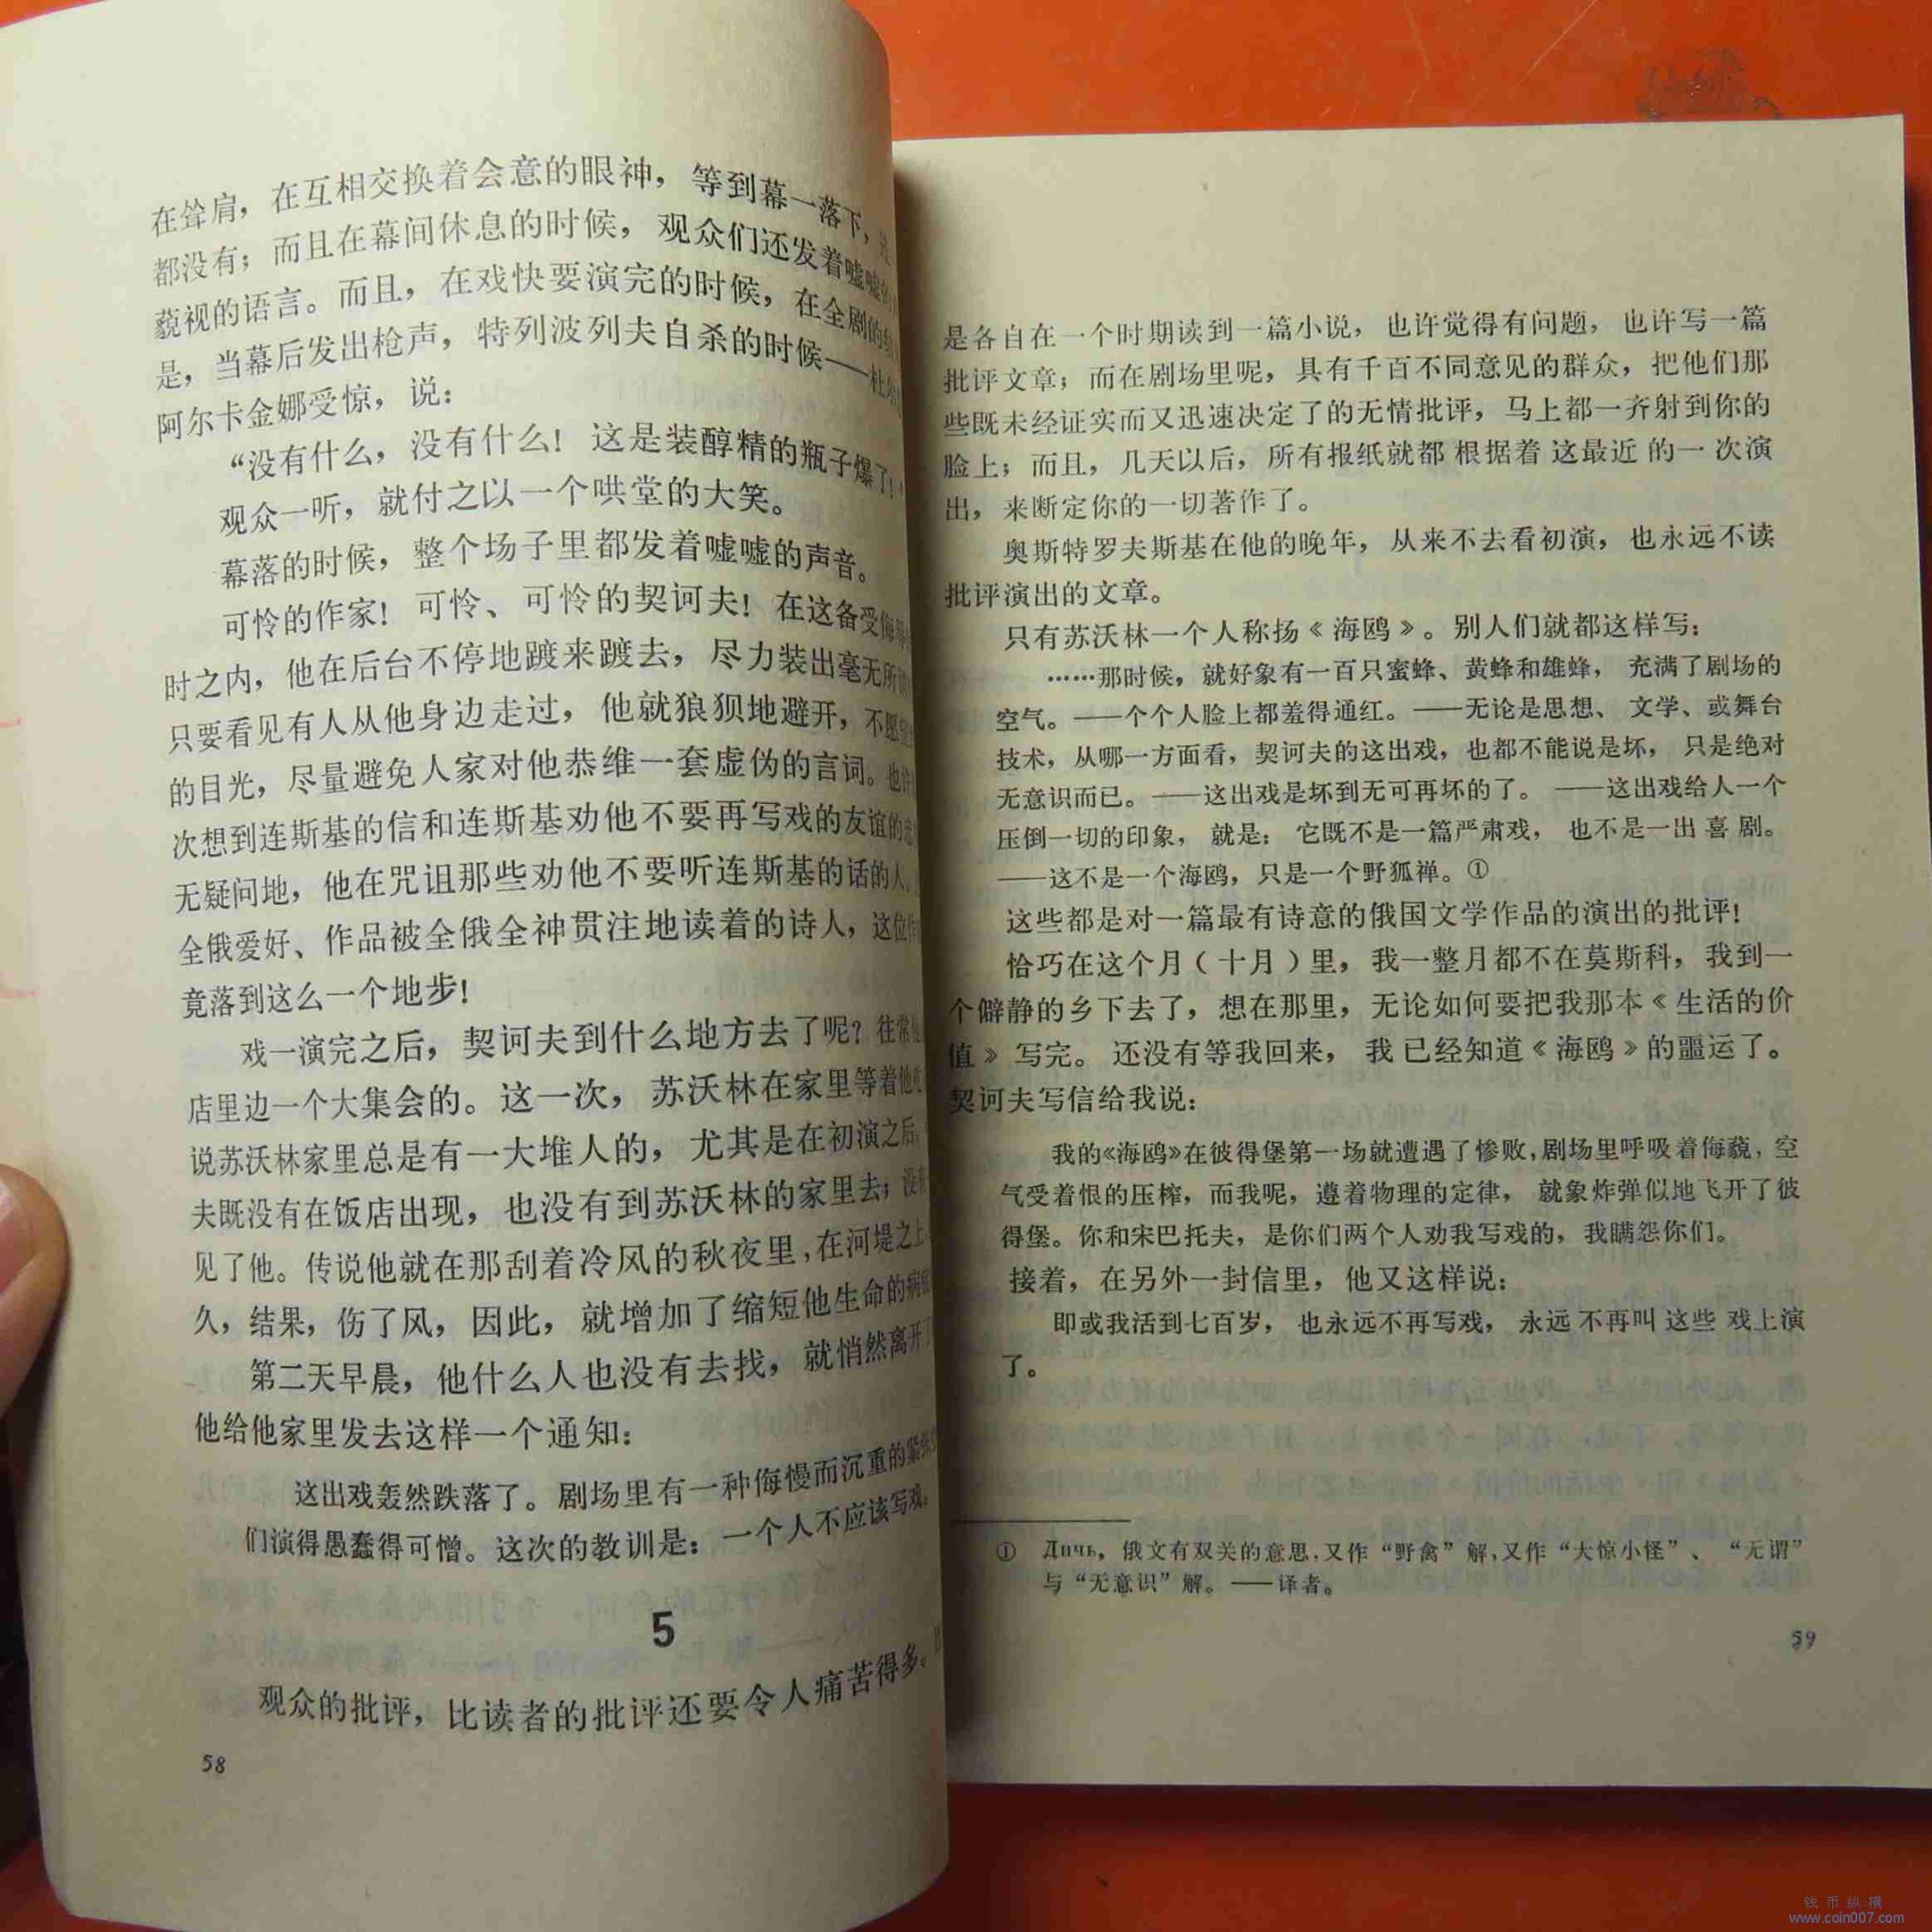 在耸肩，在互相交换着会意的眼神，等到幕一落下，
都没有；而且在幕间休息的时候，观众们还发着嘘嘘的
藐视的语言。而且，在戏快要演完的时候，在全剧的
是，当幕后发出枪声，特列波列夫自杀的时候——杜
阿尔卡金娜受惊，说：
“没有什么，没有什么！这是装醇精的瓶子爆了！”
观众一听，就付之以一个哄堂的大笑。
幕落的时候，整个场子里都发着嘘嘘的声音。
可怜的作家！可怜、可怜的契诃夫！在这备受侮
时之内，他在后台不停地踱来踱去，尽力装出毫无所
只要看见有人从他身边走过，他就狼狈地避开，不愿
的目光，尽量避免人家对他恭维一套虚伪的言词。也许
次想到连斯基的信和连斯基劝他不要再写戏的友谊的
无疑问地，他在咒诅那些劝他不要听连斯基的话的人。
全俄爱好、作品被全俄全神贯注地读着的诗人，这位
竟落到这么一个地步！
戏一演完之后，契诃夫到什么地方去了呢？往常
店里边一个大集会的。这一次，苏沃林在家里等着他
说苏沃林家里总是有一大堆人的，尤其是在初演之后
夫既没有在饭店出现，也没有到苏沃林的家里去；没有
见了他。传说他就在那刮着冷风的秋夜里，在河堤之上
久，结果，伤了风，因此，就增加了缩短他生命的病
第二天早晨，他什么人也没有去找，就悄然离开了
他给他家里发去这样一个通知：
这出戏轰然跌落了。剧场里有一种侮慢而沉重的紧
们演得愚蠢得可憎。这次的教训是：一个人不应该写戏。
5
观众的批评，比读者的批评还要令人痛苦得多。
58
是各自在一个时期读到一篇小说，也许觉得有问题，也许写一篇
批评文章；而在剧场里呢，具有千百不同意见的群众，把他们那
些既未经证实而又迅速决定了的无情批评，马上都一齐射到你的
脸上；而且，几天以后，所有报纸就都根据着这最近的一次演
出，来断定你的一切著作了。
奥斯特罗夫斯基在他的晚年，从来不去看初演，也永远不读
批评演出的文章。
只有苏沃林一个人称扬《海鸥》。别人们就都这样写：
……那时候，就好象有一百只蜜蜂、黄蜂和雄蜂，充满了剧场的
空气。——个个人脸上都羞得通红。——无论是思想、文学、或舞台
技术，从哪一方面看，契诃夫的这出戏，也都不能说是坏，只是绝对
无意识而已。——这出戏是坏到无可再坏的了。——这出戏给人一个
压倒一切的印象，就是：它既不是一篇严肃戏，也不是一出喜剧。
——这不是一个海鸥，只是一个野狐禅。①
这些都是对一篇最有诗意的俄国文学作品的演出的批评！
恰巧在这个月（十月）里，我一整月都不在莫斯科，我到一
个僻静的乡下去了，想在那里，无论如何要把我那本《生活的价
值》写完。还没有等我回来，我已经知道《海鸥》的噩运了。
契诃夫写信给我说：
我的《海鸥》在彼得堡第一场就遭遇了惨败，剧场里呼吸着侮藐，空
气受着恨的压榨，而我呢，遵着物理的定律，就象炸弹似地飞开了彼
得堡。你和宋巴托夫，是你们两个人劝我写戏的，我瞒怨你们。
接着，在另外一封信里，他又这样说：
即或我活到七百岁，也永远不再写戏，永远不再叫这些戏上演
了。
① Дичь，俄文有双关的意思，又作“野禽”解，又作“大惊小怪”、“无谓”
与“无意识”解。——译者。
59
钱币纵横
www.coin007.com